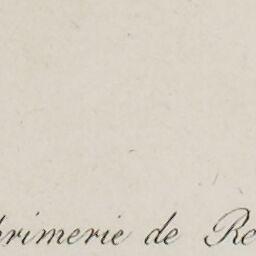 primerie de Re